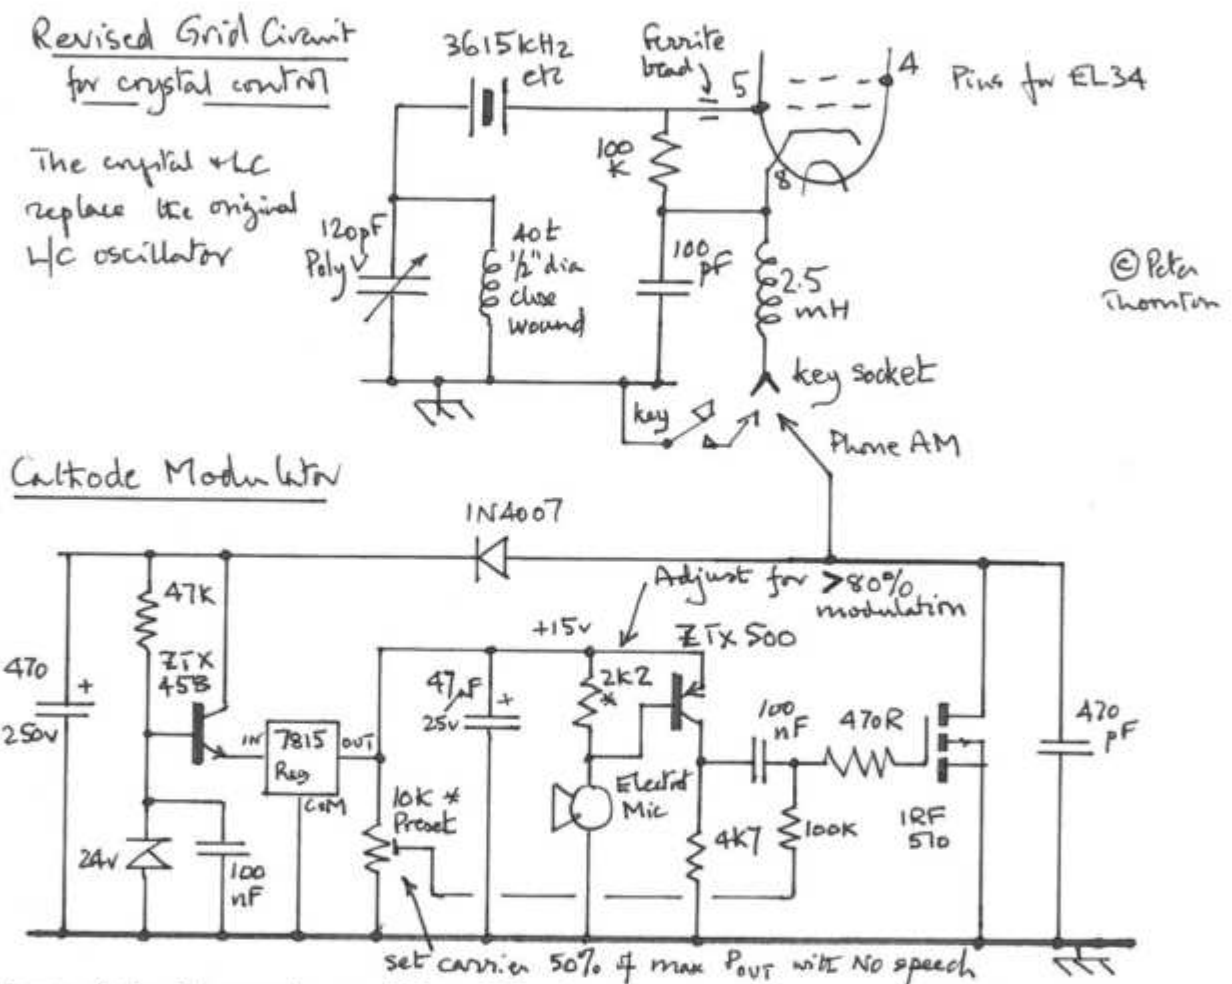 Revised Grid Circuit
for crystal control
The crystal + LC
replace the original
L/C oscillator
3615kHz
etc
ferrite
bead
5
4
Pins for EL34
100
K
8
120pF
Poly V
40t
1/2" dia
close
wound
100
pF
2.5
mH
© Peter
Thornton
key socket
key
Phone AM
Cathode Modulator
1N4007
Adjust for >80%
modulation
47K
+15v
ZTX 500
470
+
250v
ZTX
458
47µF
+
25v
2K2
*
100
nF
470R
470
pF
IN
7815
Reg
OUT
COM
10K *
Preset
Electret
Mic
4K7
100K
IRF
510
24v
100
nF
set carrier 50% of max POUT with NO speech